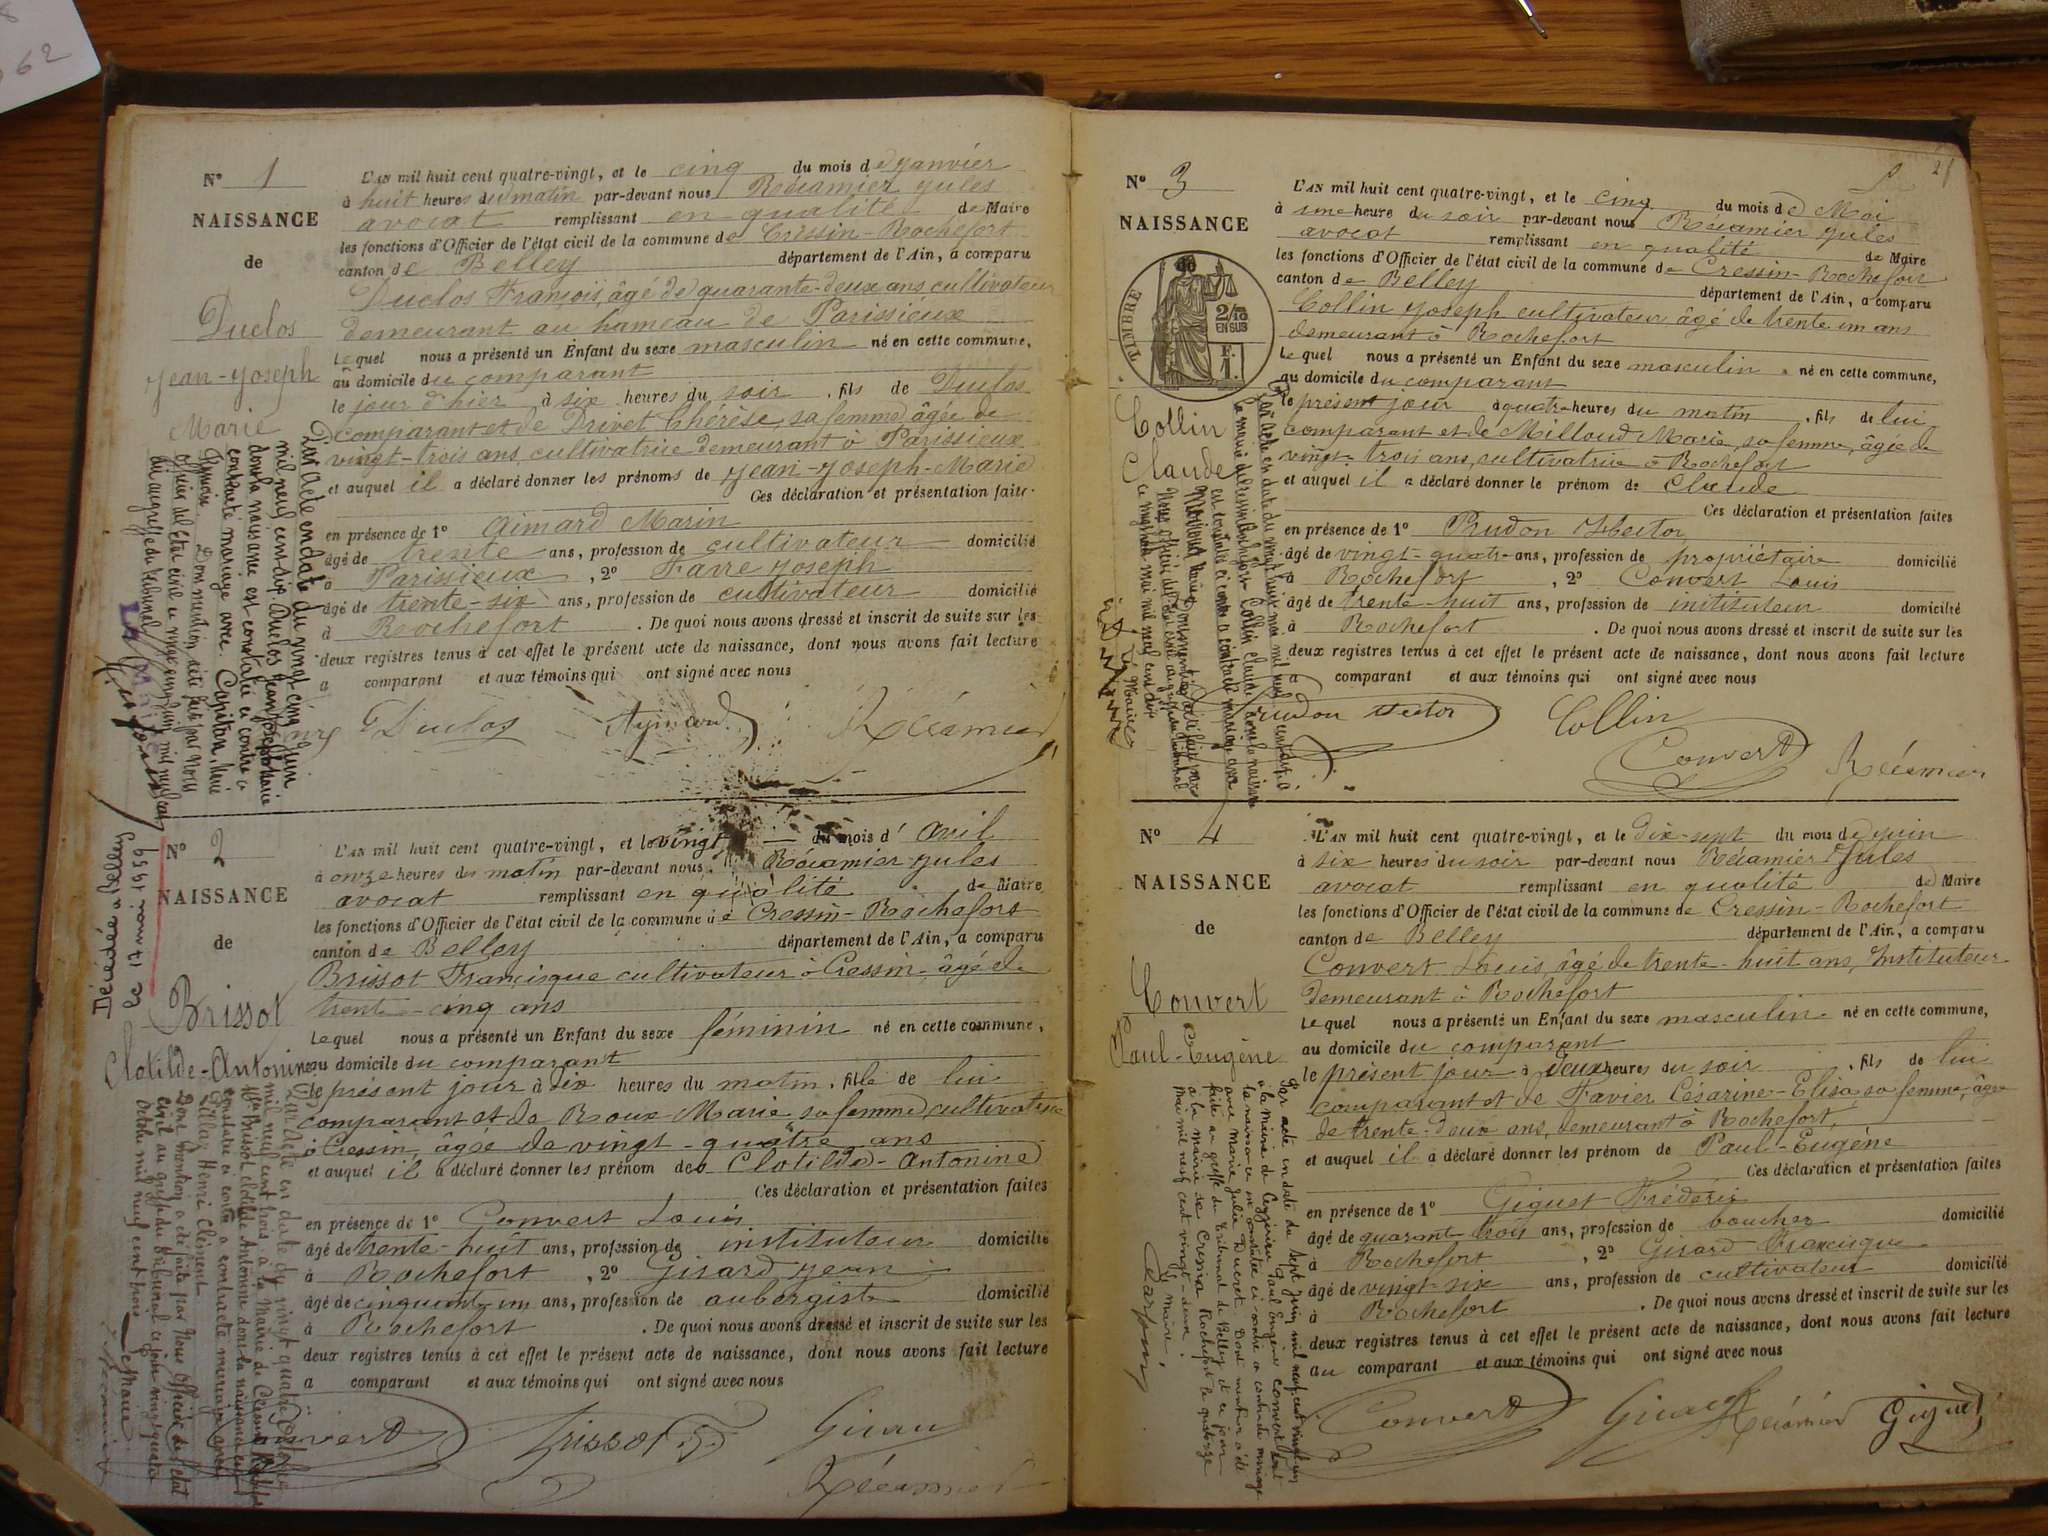 62
N° 1
NAISSANCE
de
Duclos
Jean-Joseph
Marie
L'AN mil huit cent quatre-vingt, et le cinq du mois de Janvier
à huit heures du matin par-devant nous Récamier Jules
avocat remplissant en qualité de Maire
les fonctions d'Officier de l'état civil de la commune de Cressin-Rochefort
canton de Belley département de l'Ain, a comparu
Duclos François, âgé de quarante-deux ans cultivateur
demeurant au hameau de Parissieux
Lequel nous a présenté un Enfant du sexe masculin né en cette commune,
au domicile du comparant
le jour d'hier à six heures du soir, fils de Duclos
comparant et de Drivet Thérèse, sa femme, âgée de
vingt-trois ans, cultivatrice demeurant à Parissieux
et auquel il a déclaré donner les prénoms de Jean-Joseph-Marie
Ces déclaration et présentation faites
en présence de 1° Aimard Marin
âgé de trente ans, profession de cultivateur domicilié
à Parissieux, 2° Favre Joseph
âgé de trente-six ans, profession de cultivateur domicilié
à Rochefort. De quoi nous avons dressé et inscrit de suite sur les
deux registres tenus à cet effet le présent acte de naissance, dont nous avons fait lecture
a comparant et aux témoins qui ont signé avec nous
Duclos Aymard Récamier
Par acte en date du vingt-cinq Juin
mil neuf cent six Duclos Jean Joseph Marie
dont la naissance est constatée ci contre a
contracté mariage avec Capitan
Dont mention a été faite par Nous
officier de l'Etat civil
au greffe du tribunal
N° 2
NAISSANCE
de
Brissot
Clotilde-Antonine
Décédée à Belley
le 17 mars 1959
L'AN mil huit cent quatre-vingt, et le vingt du mois d'avril
à onze heures du matin par-devant nous Récamier Jules
avocat remplissant en qualité de Maire
les fonctions d'Officier de l'état civil de la commune de Cressin-Rochefort
canton de Belley département de l'Ain, a comparu
Brissot Francisque cultivateur à Cressin, âgé de
trente-cinq ans
Lequel nous a présenté un Enfant du sexe féminin né en cette commune,
au domicile du comparant
le présent jour à dix heures du matin, fille de lui
comparant et de Roux Marie sa femme, cultivatrice
à Cressin, âgée de vingt-quatre ans
et auquel il a déclaré donner les prénom de Clotilde-Antonine
Ces déclaration et présentation faites
en présence de 1° Convert Louis
âgé de trente-huit ans, profession de instituteur domicilié
à Rochefort, 2° Girard Jean
âgé de cinquante-un ans, profession de aubergiste domicilié
à Rochefort. De quoi nous avons dressé et inscrit de suite sur les
deux registres tenus à cet effet le présent acte de naissance, dont nous avons fait lecture
a comparant et aux témoins qui ont signé avec nous
Convert Brissot F. Girard
Récamier
Par acte en date du vingt quatre octobre
mil neuf cent trois à la Mairie de Cressin Rochefort
Brissot Clotilde Antonine dont la naissance est
constatée ci contre a contracté mariage avec
Henri Clément
Dont mention a été faite par Nous Officier de l'état
civil au greffe du tribunal ce jour vingt quatre
octobre mil neuf cent trois
Le Maire
Récamier
N° 3
NAISSANCE
de
TIMBRE
2/10 EN SUS
Collin
Claude
L'AN mil huit cent quatre-vingt, et le cinq du mois de Mai
à une heure du soir par-devant nous Récamier Jules
avocat remplissant en qualité de Maire
les fonctions d'Officier de l'état civil de la commune de Cressin-Rochefort
canton de Belley département de l'Ain, a comparu
Collin Joseph cultivateur âgé de trente-un ans
demeurant à Rochefort
Lequel nous a présenté un Enfant du sexe masculin né en cette commune,
au domicile du comparant
le présent jour à quatre heures du matin, fils de lui
comparant et de Milloud Marie, sa femme, âgée de
vingt-trois ans, cultivatrice à Rochefort
et auquel il a déclaré donner le prénom de Claude
Ces déclaration et présentation faites
en présence de 1° Prudon Hector
âgé de vingt-quatre ans, profession de propriétaire domicilié
à Rochefort, 2° Convert Louis
âgé de trente-huit ans, profession de instituteur domicilié
à Rochefort. De quoi nous avons dressé et inscrit de suite sur les
deux registres tenus à cet effet le présent acte de naissance, dont nous avons fait lecture
a comparant et aux témoins qui ont signé avec nous
Prudon Hector Collin
Convert Récamier
Par acte en date du vingt huit mai mil neuf cent dix à
la mairie de Cressin Rochefort Collin Claude dont la naissance
est constatée ci contre a contracté mariage avec
Marie Dont mention a été faite par
Nous officier de l'Etat civil au greffe du tribunal
ce vingt huit mai mil neuf cent dix
Le Maire
N° 4
NAISSANCE
de
Convert
Paul-Eugène
L'AN mil huit cent quatre-vingt, et le dix-sept du mois de Juin
à six heures du soir par-devant nous Récamier Jules
avocat remplissant en qualité de Maire
les fonctions d'Officier de l'état civil de la commune de Cressin-Rochefort
canton de Belley département de l'Ain, a comparu
Convert Louis, âgé de trente-huit ans, Instituteur
demeurant à Rochefort
Lequel nous a présenté un Enfant du sexe masculin né en cette commune,
au domicile du comparant
le présent jour à deux heures du soir, fils de lui
comparant et de Favier Césarine-Elisa, sa femme, âgée
de trente-deux ans, demeurant à Rochefort,
et auquel il a déclaré donner les prénom de Paul-Eugène
Ces déclaration et présentation faites
en présence de 1° Giguet Frédéric
âgé de quarante-trois ans, profession de boucher domicilié
à Rochefort, 2° Girard Francisque
âgé de vingt-six ans, profession de cultivateur domicilié
à Rochefort. De quoi nous avons dressé et inscrit de suite sur les
deux registres tenus à cet effet le présent acte de naissance, dont nous avons fait lecture
au comparant et aux témoins qui ont signé avec nous
Convert Girard Récamier Giguet
Par acte en date du sept juin mil neuf cent vingt un
à la Mairie de Ceyzérieu Paul Eugène Convert dont
la naissance est constatée ci-contre a contracté mariage
avec Marie Julie Ducret Dont mention a été
faite au greffe du Tribunal de Belley et ce jour
à la mairie de Cressin Rochefort le quatorze
mai mil neuf cent vingt-deux.
Le maire,